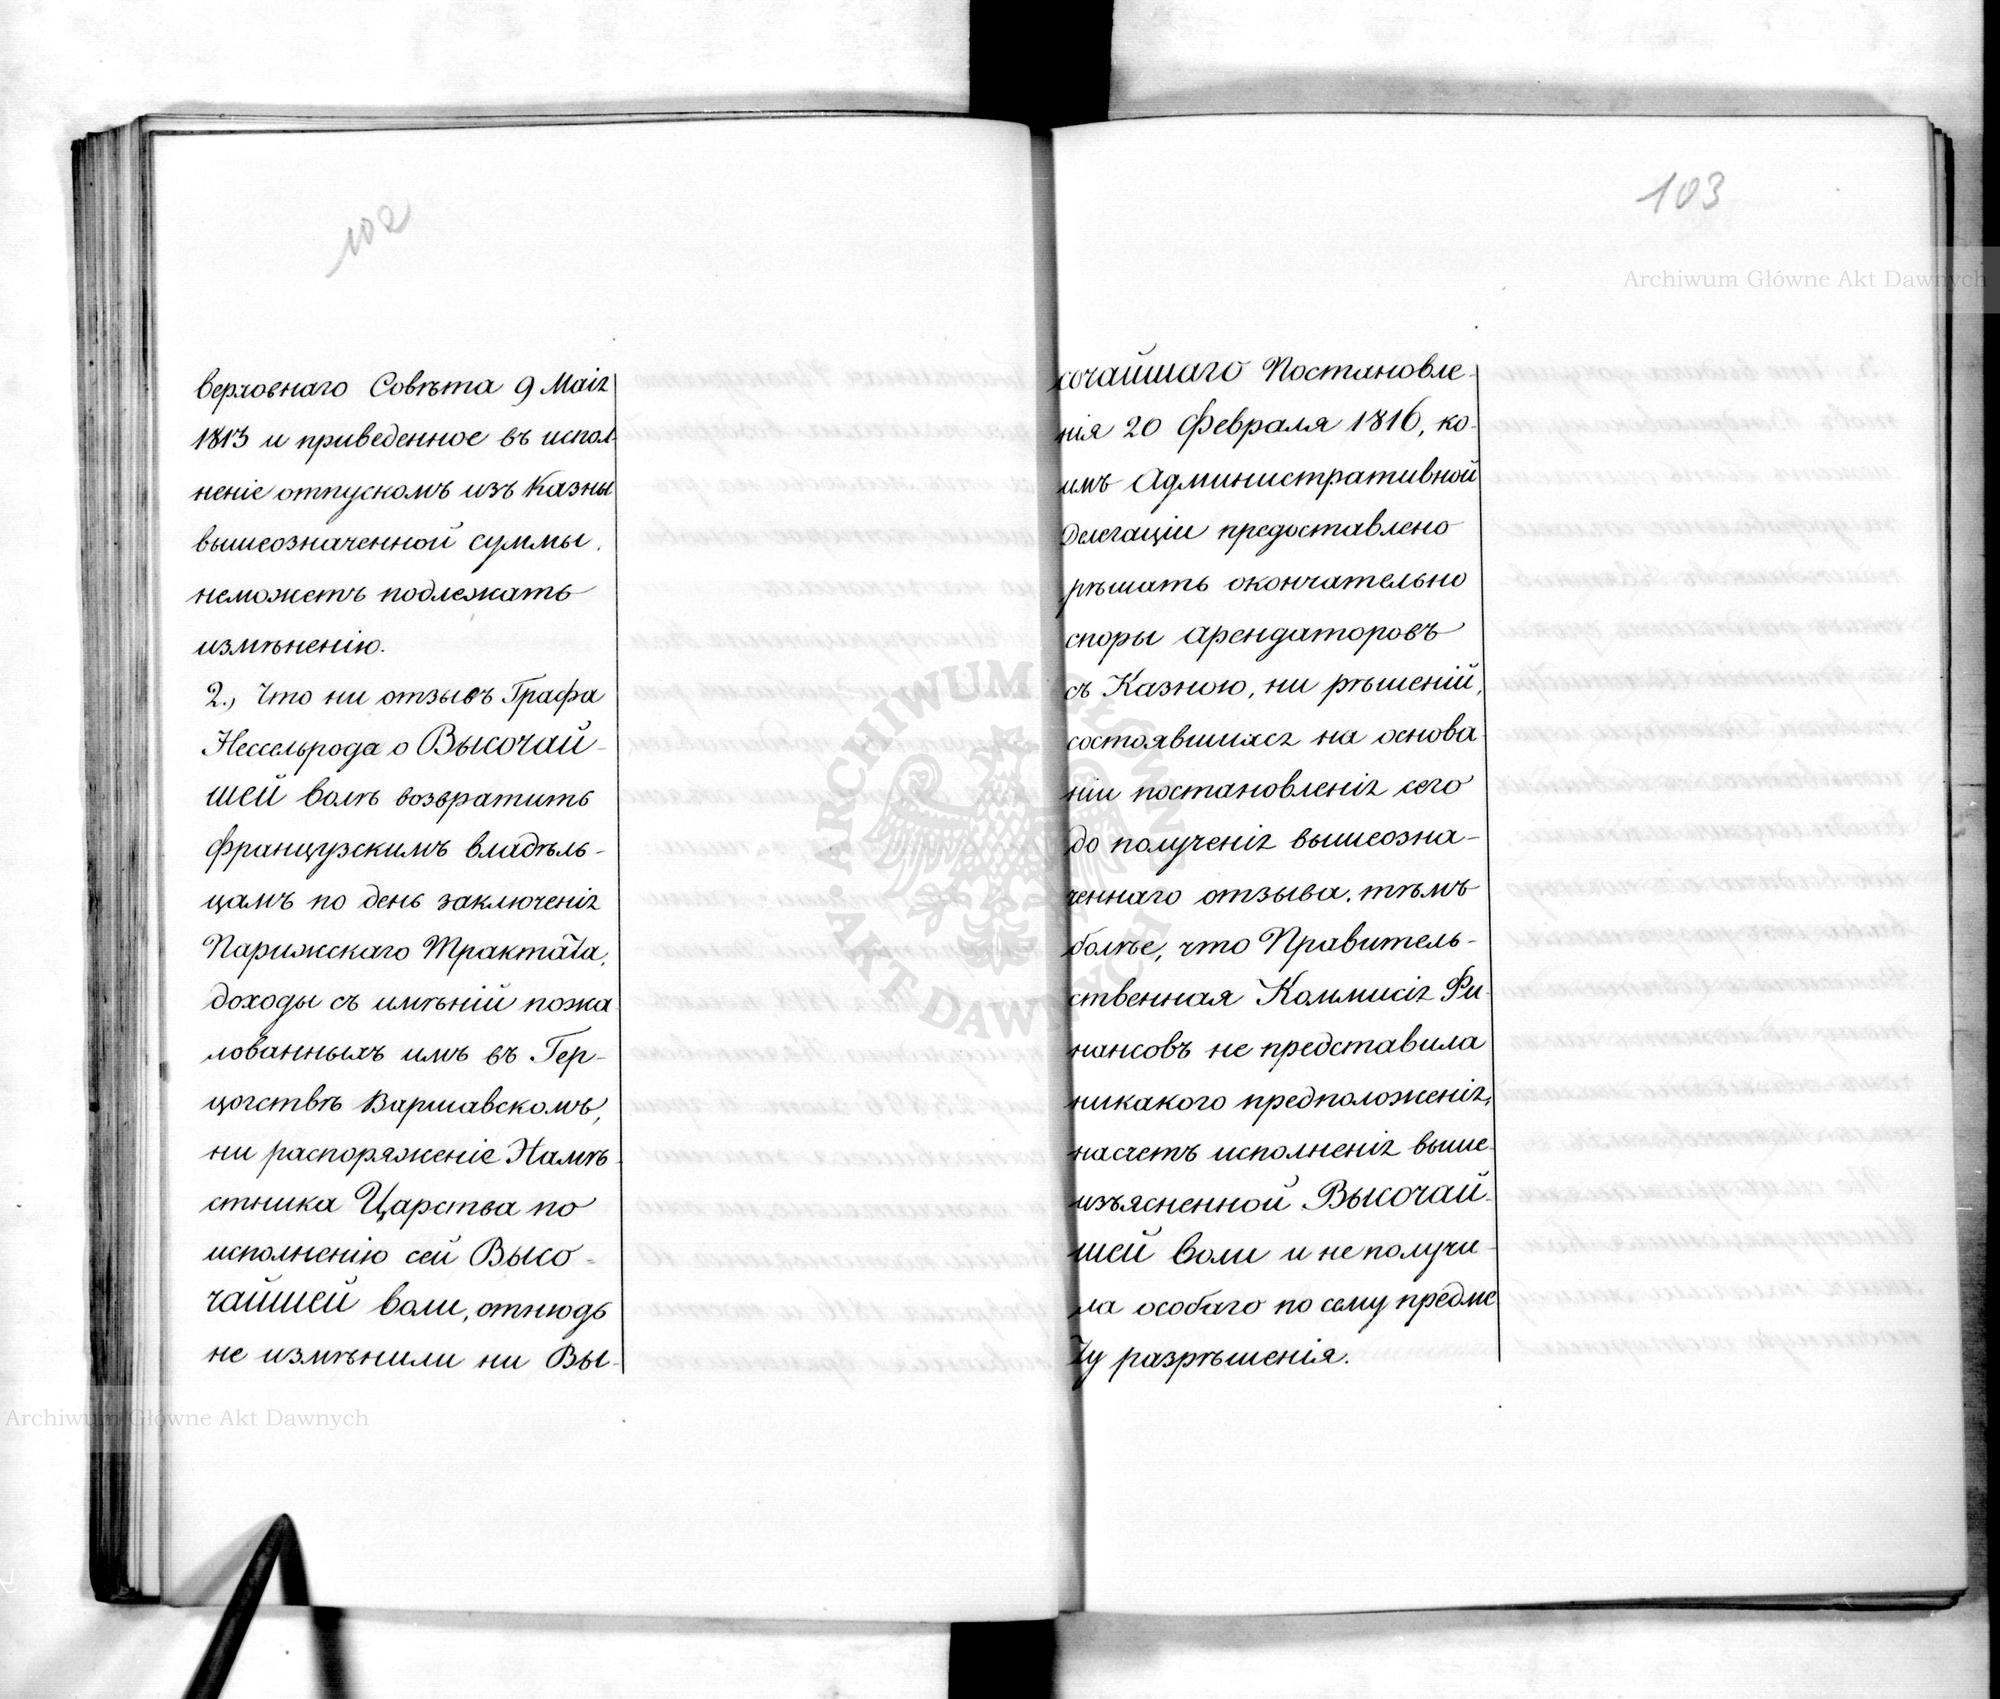 102
верховнаго Совѣта 9 Маія
1813 и приведенное въ испол-
неніе отпускомъ изъ Казны
вышеозначенной суммы,
неможетъ подлежать
измѣненію.
2., Что ни отзывъ Графа
Нессельрода о Высочай-
шей волѣ возвратить
французскимъ владѣль-
цамъ по день заключенія
Парижскаго Трактата,
доходы съ имѣній пожа-
лованныхъ имъ въ Гер-
цогствѣ Варшавскомъ,
ни распоряженіе Намѣ-
стника Царства по
исполненію сей Высо-
чайшей воли, отнюдь
не измѣнили ни Вы-
103
сочайшаго Постановле-
нія 20 Февраля 1816, ко-
имъ Административной
Делегаціи предоставлено
рѣшать окончательно
споры арендаторовъ
съ Казною, ни рѣшеній,
состоявшихся на основа-
ніи постановленія сего
до полученія вышеозна-
ченнаго отзыва, тѣмъ
болѣе, что Правитель-
ственная Коммисія Фи-
нансовъ не представила
никакого предположенія,
насчетъ исполненія выше-
изъясненной Высочай-
шей воли и не получи-
ла особаго по сему предме
ту разрѣшенія.
Archiwum Główne Akt Dawnych
Archiwum Główne Akt Dawnych
ARCHIWUM GŁÓWNE AKT DAWNYCH